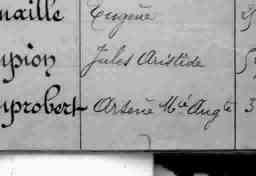 maille Eugène
mpion Jules Aristide
mprobert Arsène Mie Augte 3